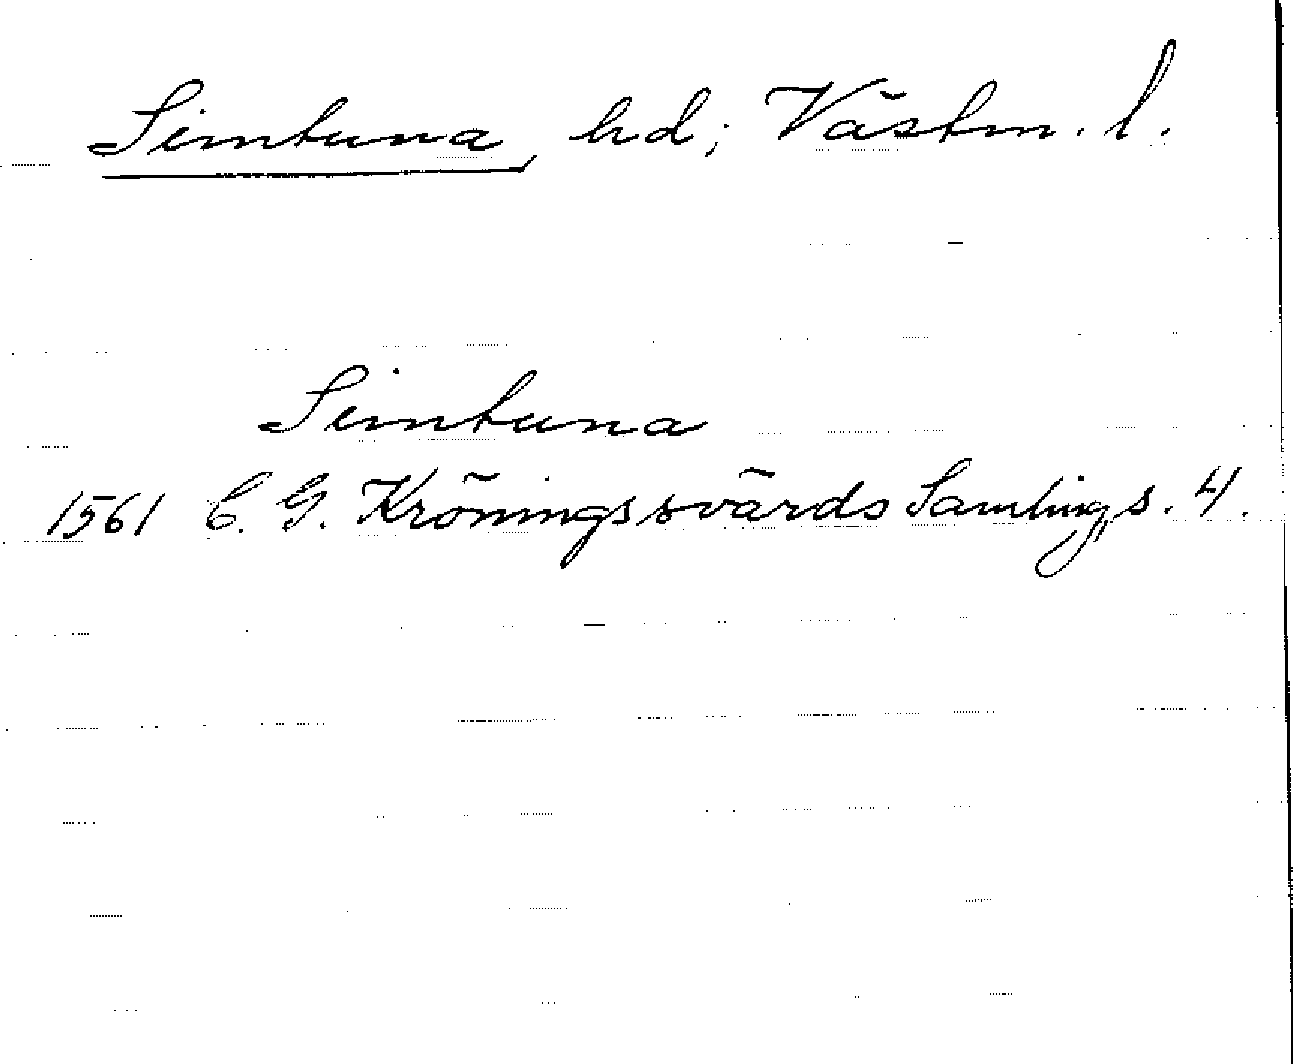 Simtuna, hd; Västm. l.
Simtuna
1561 C. G. Kröningssvärds Samling, s. 4.